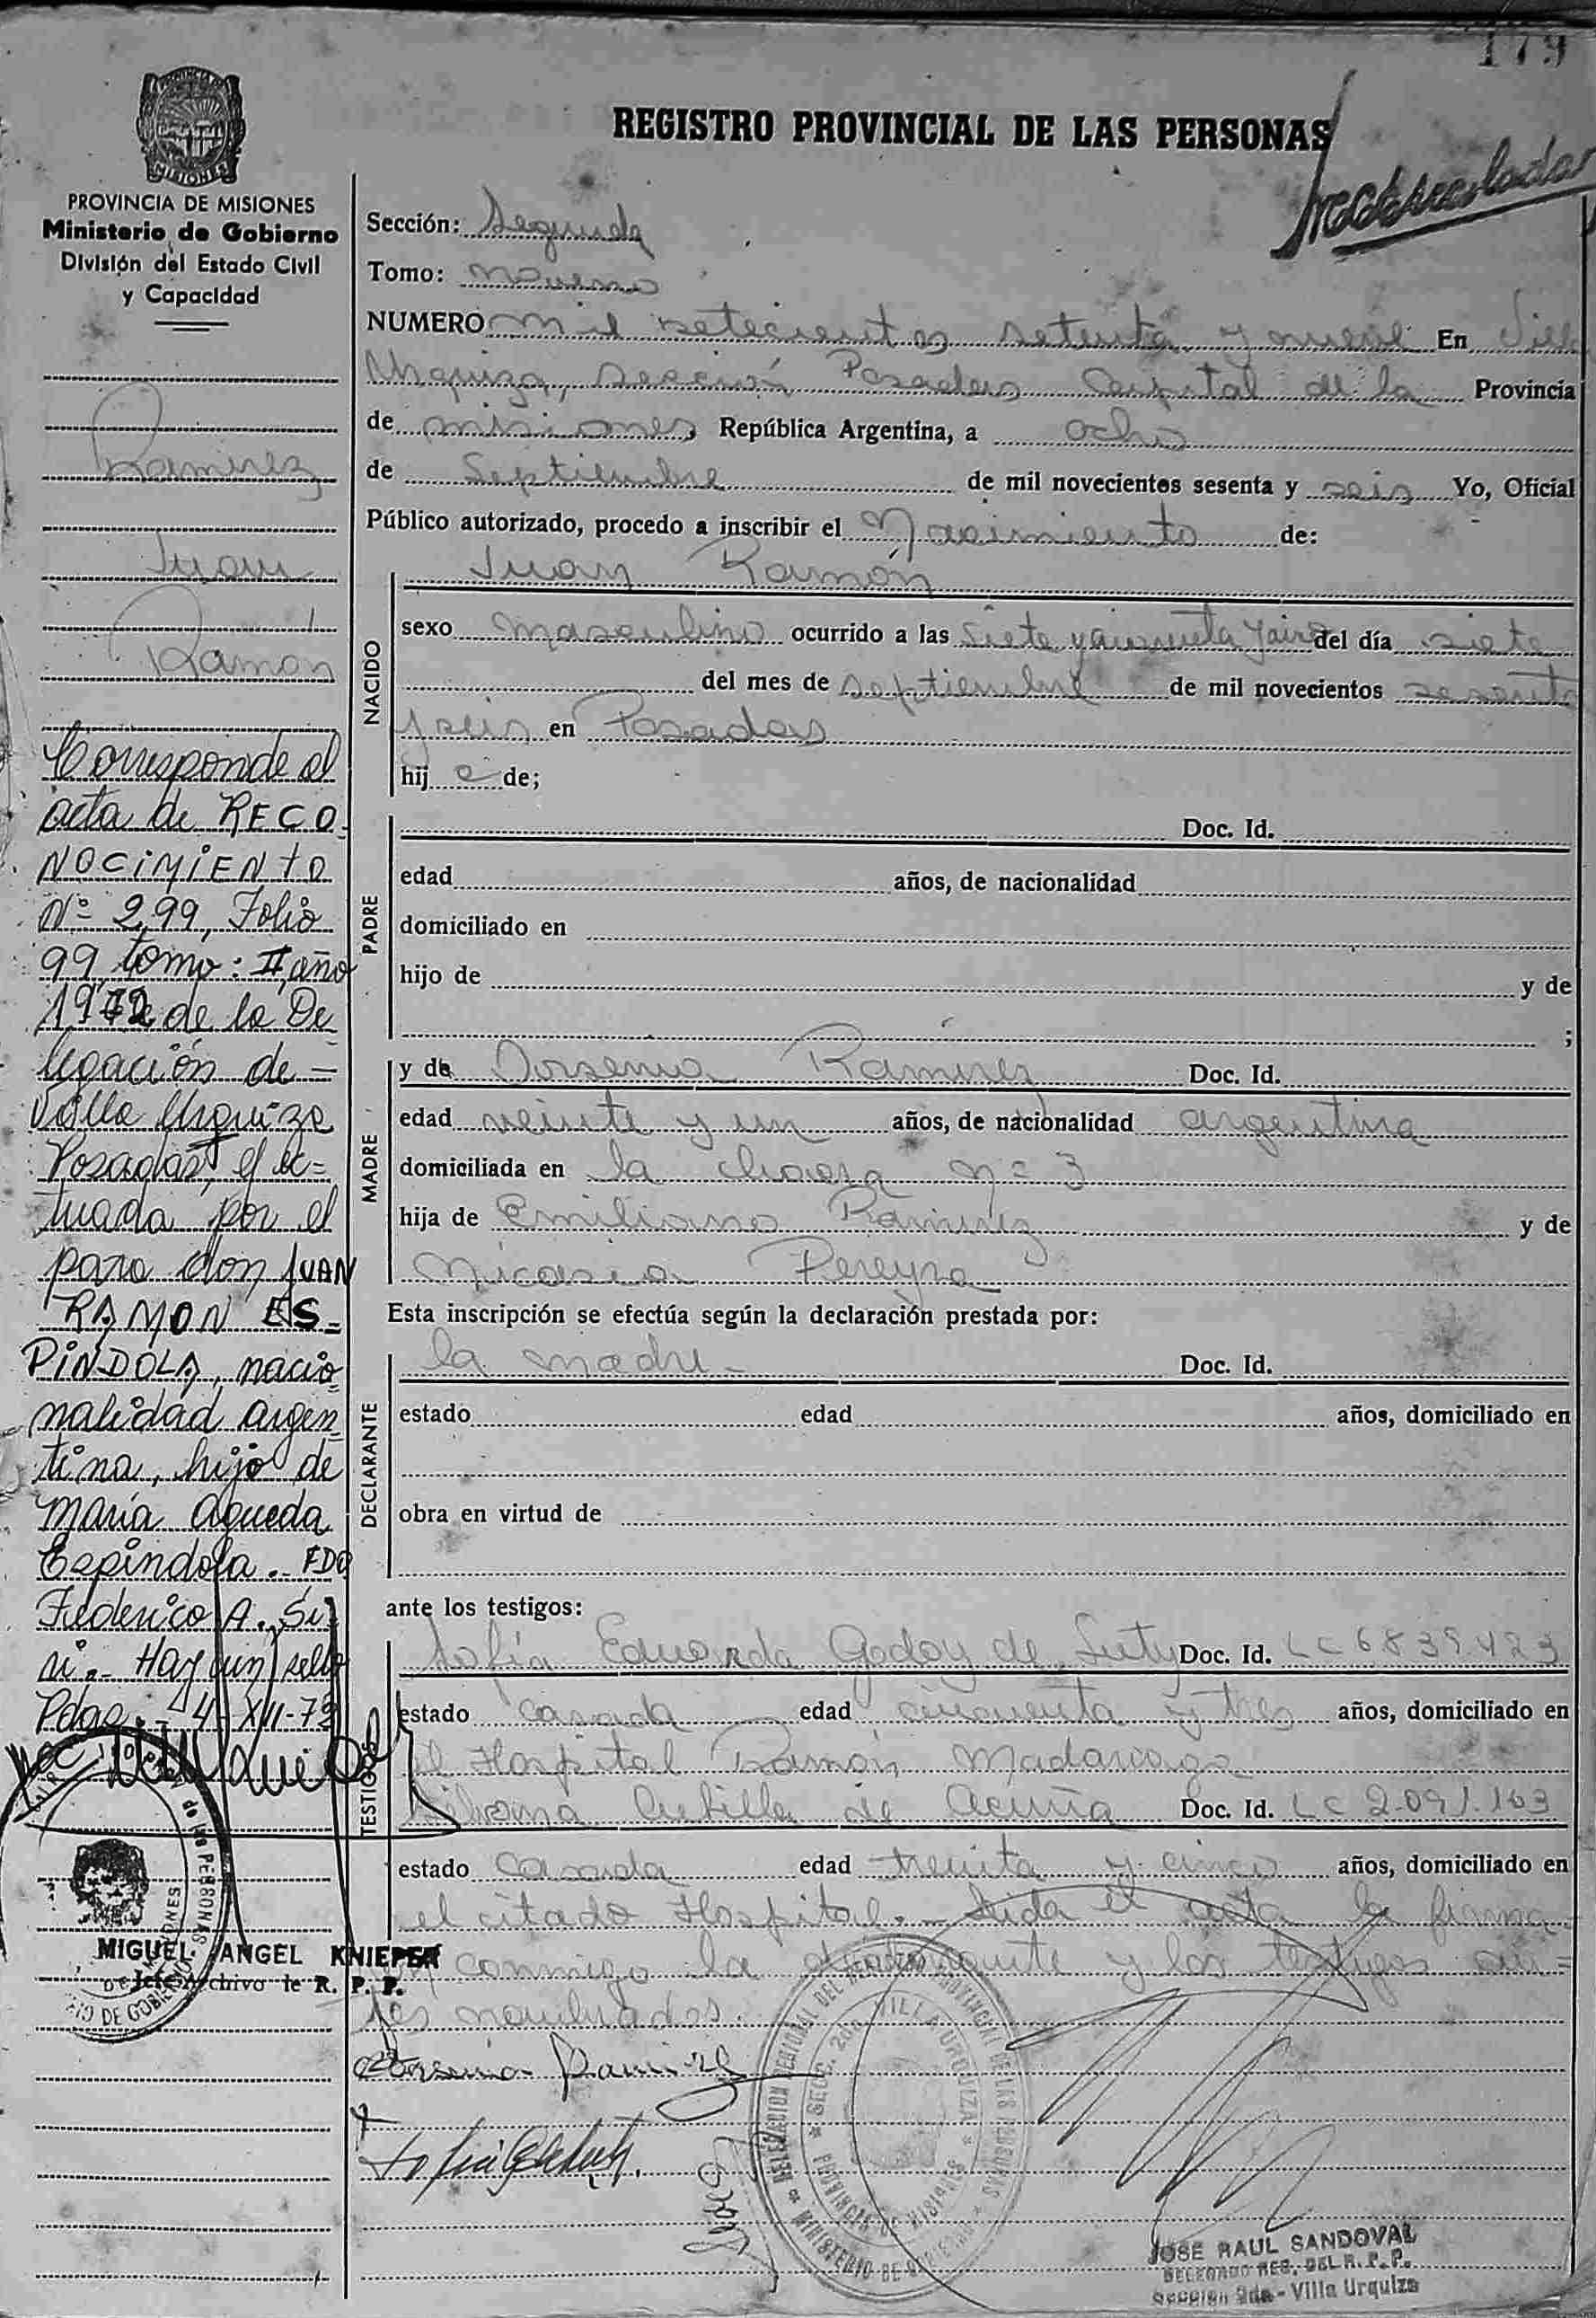 179
REGISTRO PROVINCIAL DE LAS PERSONAS
MISIONES
PROVINCIA DE MISIONES
Ministerio de Gobierno
División del Estado Civil
y Capacidad
Ramirez
Juan
Ramon
Corresponde al
acta de RECO-
NOCIMIENTO
Nº 299, Folio
99 tomo: II, año
de la De
legación de -
Villa Urquiza
Posadas, efec=
tuada por el
para don JUAN
RAMON ES-
PINDOLA, nacio
nalidad argen
tina, hijo de
maria Agueda
Espindola. FDO
Federico A. Si
ni.- Hay un sello
Pdas.- 4-XII-72
MIGUEL ANGEL KNIEPER
Jefe Archivo de R. P. P.
Sección: Segunda
Tomo: noveno
NUMERO mil setecientos setenta y nueve En Villa
Urquiza, sección Posadas Capital de la Provincia
de misiones, República Argentina, a ocho
de Septiembre de mil novecientos sesenta y seis Yo, Oficial
Público autorizado, procedo a inscribir el Nacimiento de:
NACIDO
Juan Ramón
sexo masculino ocurrido a las siete y cincuenta y cinco del día siete
del mes de septiembre de mil novecientos sesenta
y seis en Posadas
hij o de;
PADRE
Doc. Id.
edad años, de nacionalidad
domiciliado en
hijo de y de
;
MADRE
y de Ramirez Doc. Id.
edad veinte y un años, de nacionalidad argentina
domiciliada en la chacra nº 3
hija de Emiliano Ramirez y de
Nicasia Pereyra
Esta inscripción se efectúa según la declaración prestada por:
DECLARANTE
la madre - Doc. Id.
estado edad años, domiciliado en
obra en virtud de
ante los testigos:
TESTIGOS
Sofía Eduarda Godoy de Doc. Id. LC 6839423
estado casada edad cincuenta y tres años, domiciliado en
el Hospital Ramón Madariaga
Cubilla de Acuña Doc. Id. LC 2.091.103
estado casada edad treinta y cinco años, domiciliado en
el citado Hospital. Leida el acta la firma
conmigo la declarante y los testigos an=
tes nombrados.
Ramirez
DELEGACION REGIONAL DEL REGISTRO PROVINCIAL DE LAS PERSONAS
SECC. 2da. VILLA URQUIZA
PROVINCIA DE MISIONES
MINISTERIO DE GOBIERNO
JOSE RAUL SANDOVAL
DELEGADO REG. DEL R. P. P.
Sección 2da - Villa Urquiza